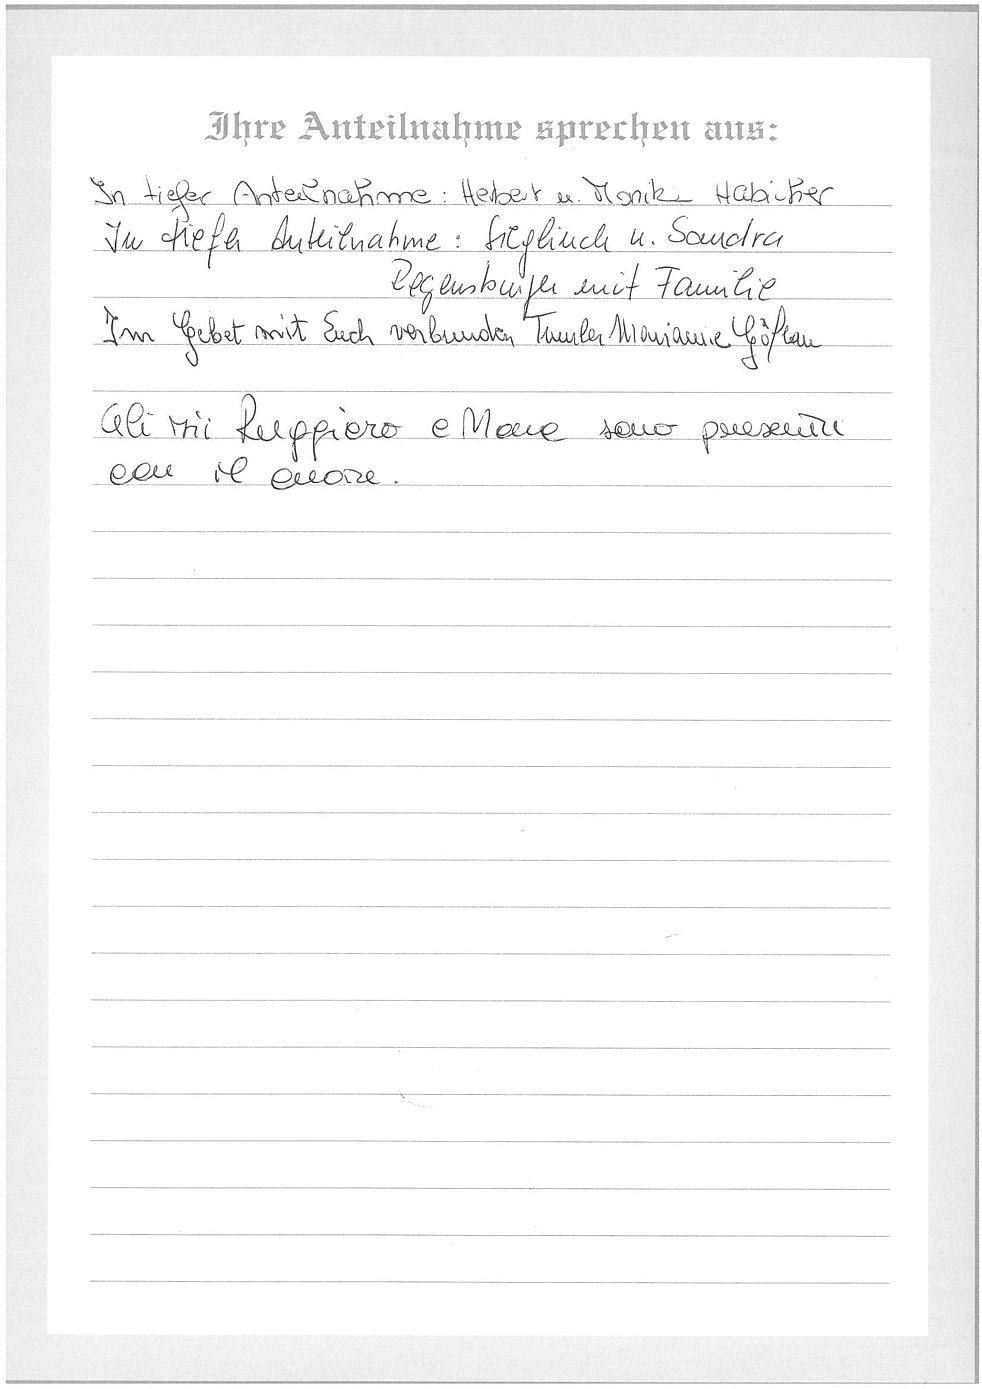 Ihre Anteilnahme sprechen aus:
In tiefer Anteilnahme: Herbert u. Monika Habicher
In tiefer Anteilnahme: Sieglinde u. Sandra
Regensburger mit Familie
Im Gebet mit Euch verbunden Tumler Marianne Göflan
Gli zii Ruggiero e Mara sono presenti
con il cuore.